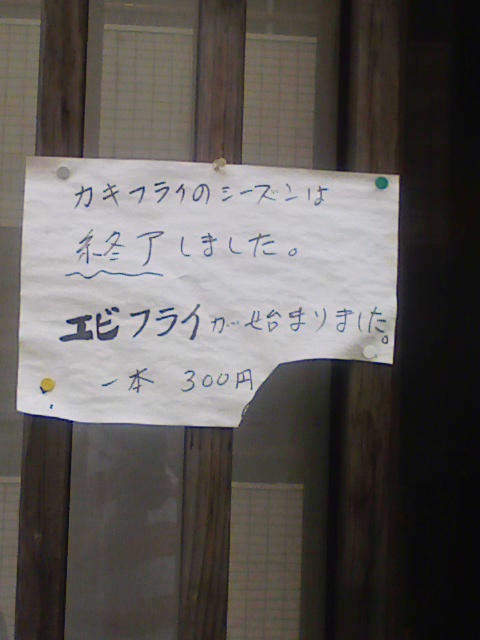 カキフライのシーズンは
終了しました。
エビフライが始まりました。
一本 300円